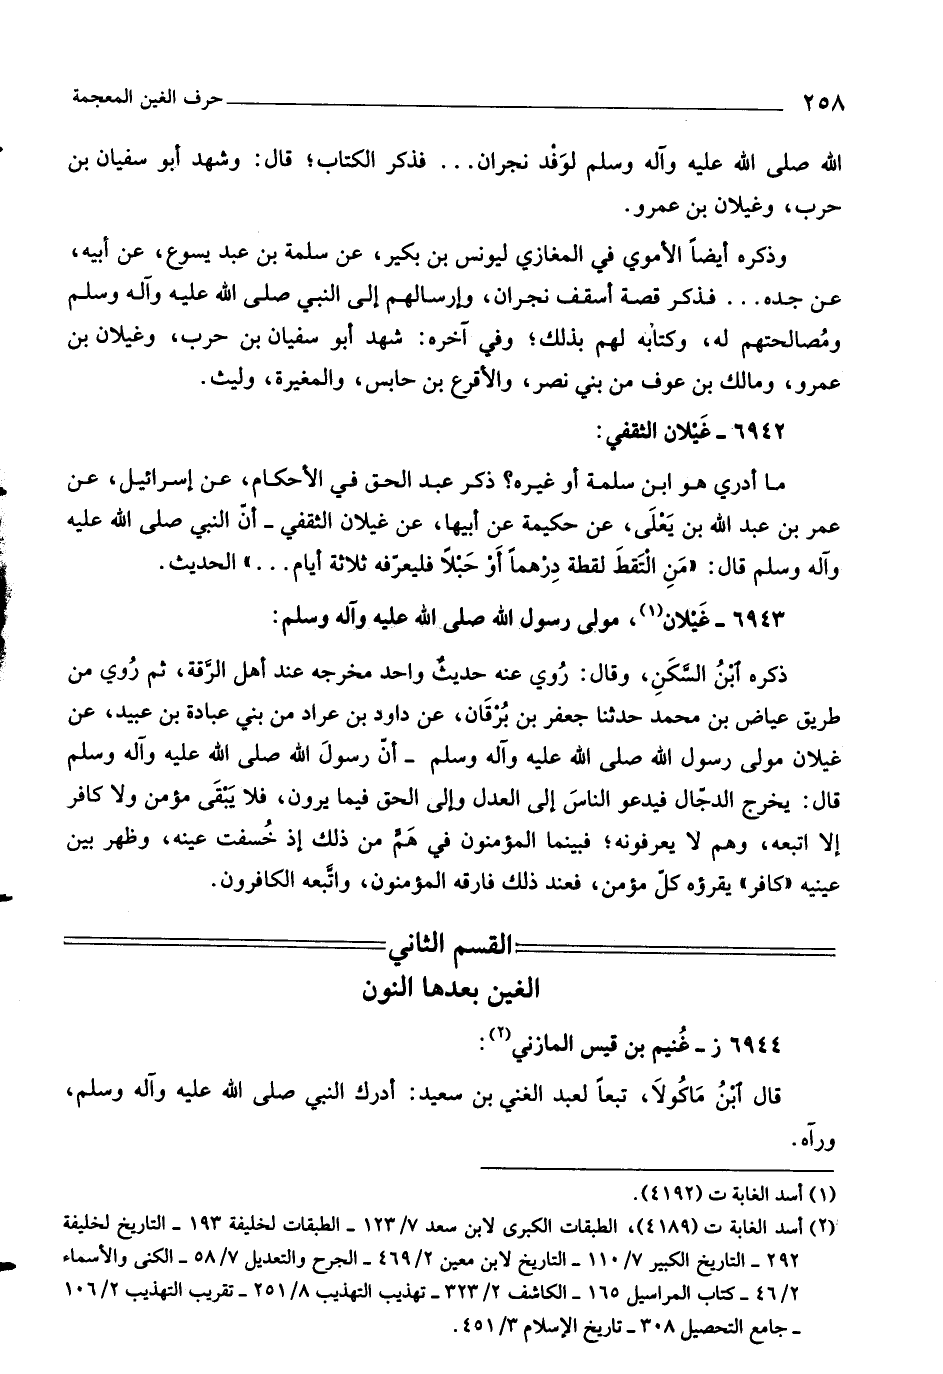 ٢٥٨ ــــــ حرف الغين المعجمة
الله صلى الله عليه وآله وسلم لوَفْد نجران... فذكر الكتاب؛ قال: وشهد أبو سفيان بن
حرب، وغيلان بن عمرو.
وذكره أيضاً الأموي في المغازي ليونس بن بكير، عن سلمة بن عبد يسوع، عن أبيه،
عن جده... فذكر قصة أسقف نجران، وإرسالهم إلى النبي صلى الله عليه وآله وسلم
ومُصالحتهم له، وكتابه لهم بذلك؛ وفي آخره: شهد أبو سفيان بن حرب، وغيلان بن
عمرو، ومالك بن عوف من بني نصر، والأقرع بن حابس، والمغيرة، وليث.
٦٩٤٢ ـ غَيْلان الثقفي:
ما أدري هو ابن سلمة أو غيره؟ ذكر عبد الحق في الأحكام، عن إسرائيل، عن
عمر بن عبد الله بن يَعْلَى، عن حكيمة عن أبيها، عن غيلان الثقفي ـ أنّ النبي صلى الله عليه
وآله وسلم قال: «مَنِ الْتَقطَ لقطة دِرْهماً أَوْ حَبْلًا فليعرّفه ثلاثة أيام...» الحديث.
٦٩٤٣ ـ غَيْلان(١)، مولى رسول الله صلى الله عليه وآله وسلم:
ذكره ٱبْنُ السَّكَنِ، وقال: رُوي عنه حديثٌ واحد مخرجه عند أهل الرَّقة، ثم رُوي من
طريق عياض بن محمد حدثنا جعفر بن بُرْقَان، عن داود بن عراد من بني عبادة بن عبيد، عن
غيلان مولى رسول الله صلى الله عليه وآله وسلم ـ أنّ رسولَ الله صلى الله عليه وآله وسلم
قال: يخرج الدجّال فيدعو الناسَ إلى العدل وإلى الحق فيما يرون، فلا يَبْقَى مؤمن ولا كافر
إلا اتبعه، وهم لا يعرفونه؛ فبينما المؤمنون في هَمٍّ من ذلك إذ خُسفت عينه، وظهر بين
عينيه «كافر» يقرؤه كلّ مؤمن، فعند ذلك فارقه المؤمنون، واتَّبعه الكافرون.
القسم الثاني
الغين بعدها النون
٦٩٤٤ ز ـ غُنيم بن قيس المازني(٢):
قال ٱبْنُ مَاكُولاَ، تبعاً لعبد الغني بن سعيد: أدرك النبي صلى الله عليه وآله وسلم،
ورآه.
(١) أسد الغابة ت (٤١٩٢).
(٢) أسد الغابة ت (٤١٨٩)، الطبقات الكبرى لابن سعد ١٢٣/٧ ـ الطبقات لخليفة ١٩٣ ـ التاريخ لخليفة
٢٩٢ ـ التاريخ الكبير ١١٠/٧ ـ التاريخ لابن معين ٤٦٩/٢ ـ الجرح والتعديل ٥٨/٧ ـ الكنى والأسماء
٤٦/٢ ـ كتاب المراسيل ١٦٥ ـ الكاشف ٣٢٣/٢ ـ تهذيب التهذيب ٢٥١/٨ ـ تقريب التهذيب ١٠٦/٢
ـ جامع التحصيل ٣٠٨ ـ تاريخ الإسلام ٤٥١/٣.